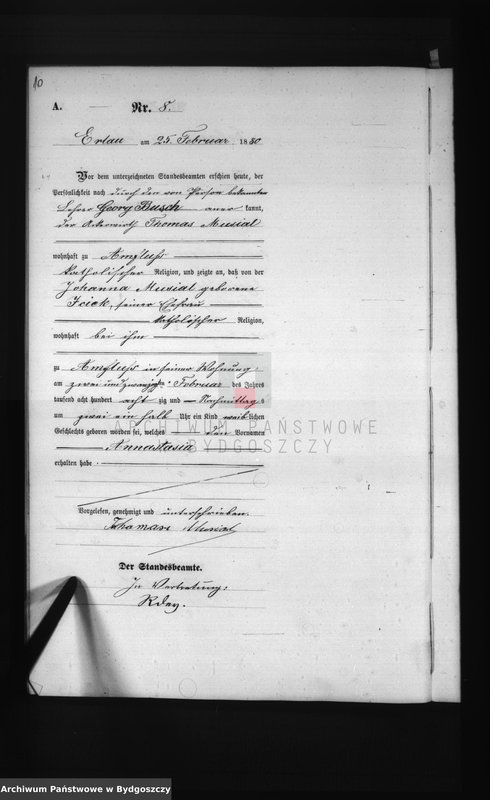 10
A. Nr. 8.
Erlau am 25. Februar 1880
Vor dem unterzeichneten Standesbeamten erschien heute, der
Persönlichkeit nach durch den von Person bekannten
Lehrer Georg Busch aner kannt,
der Ackerwirth Thomas Musial
wohnhaft zu Amfluss
katholischer Religion, und zeigte an, daß von der
Johanna Musial geborene
Icick, seiner Ehefrau
katholischer Religion,
wohnhaft bei ihm
zu Amfluss in seiner Wohnung
am zwei und zwanzigsten Februar des Jahres
tausend acht hundert acht zig und Nachmittags
um zwei ein halb Uhr ein Kind weib lichen
Geschlechts geboren worden sei, welches den Vornamen
Annastasia
erhalten habe.
Vorgelesen, genehmigt und unterschrieben.
Thomas Musial
Der Standesbeamte.
In Vertretung:
ARCHIWUM PAŃSTWOWE
W BYDGOSZCZY
Archiwum Państwowe w Bydgoszczy